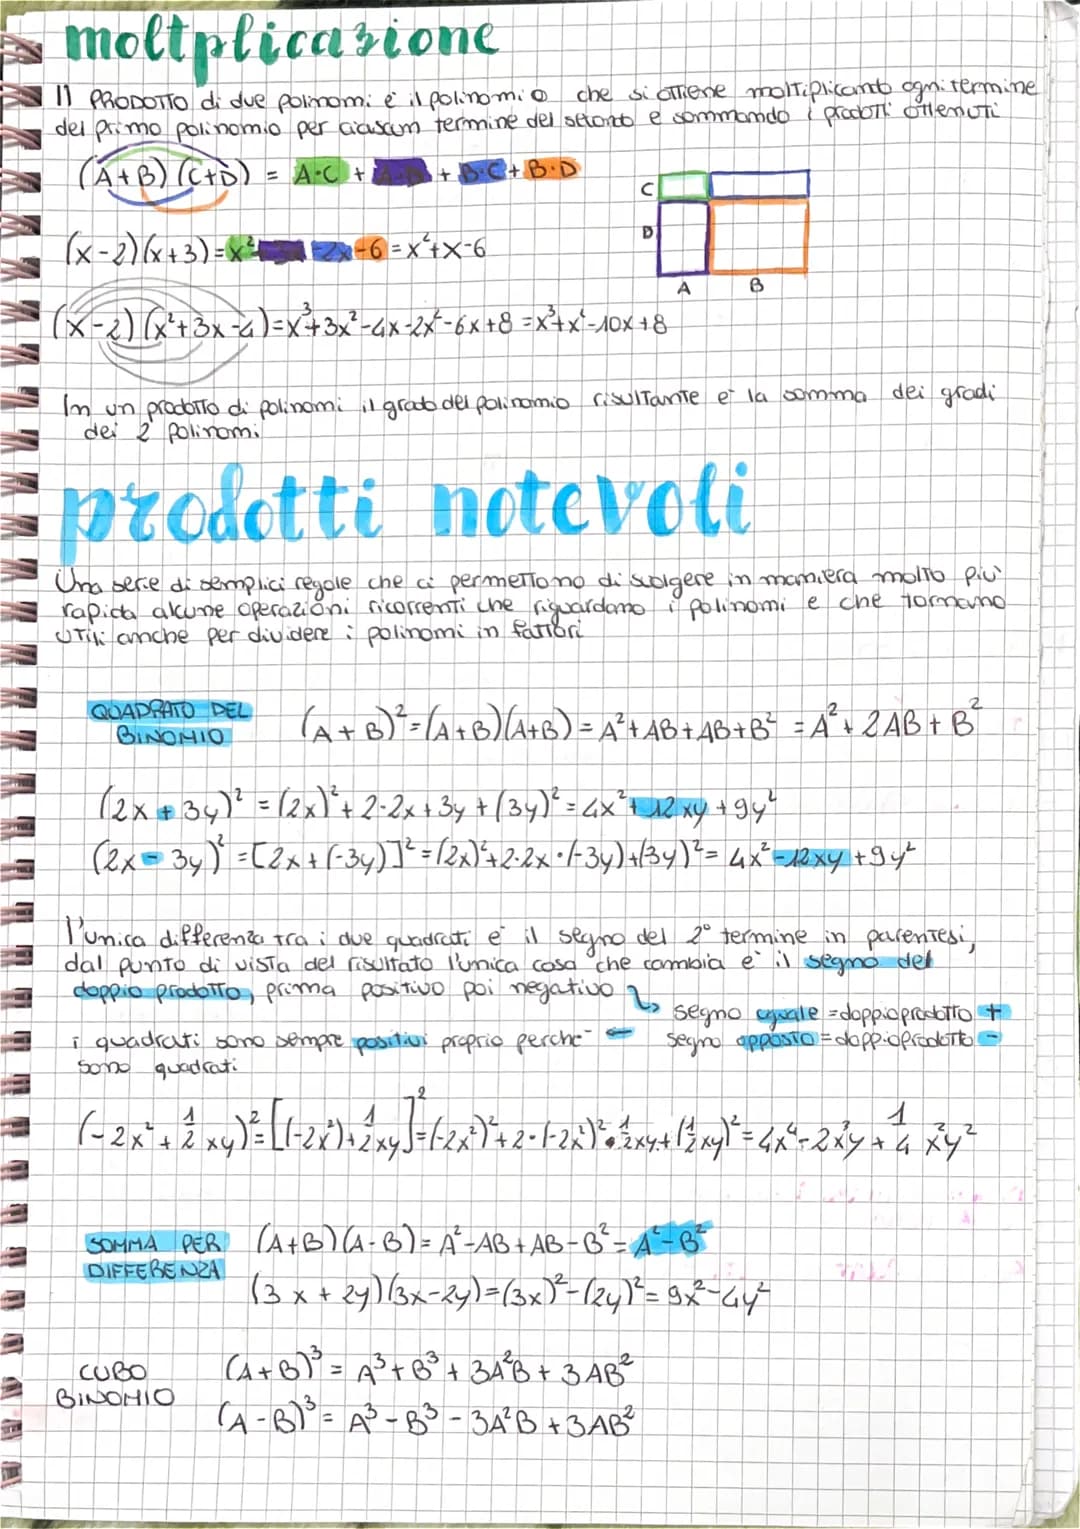 moltplicazione
Il PRODOTTO di due polinomi è il polinomio che si ottiene moltiplicando ogni termine
del primo polinomio per ciascun termine del secondo e sommando i prodotti ottenuti
(A+B)(C+D) = A·C + A·D + B·C + B·D
C
D
A B
(x-2)(x+3)=x² -2x -6 = x²+x-6
(x-2)(x²+3x-4)=x³+3x²-4x-2x²-6x+8 =x³+x²-10x+8
In un prodotto di polinomi il grado del polinomio risultante è la somma dei gradi
dei 2 polinomi
prodotti notevoli
Una serie di semplici regole che ci permettono di svolgere in maniera molto più
rapida alcune operazioni ricorrenti che riguardano i polinomi e che tornano
utili anche per dividere i polinomi in fattori
QUADRATO DEL
BINOMIO
(A+B)²=(A+B)(A+B)=A²+AB+AB+B² =A²+2AB+B²
(2x+3y)² =(2x)²+2·2x+3y+(3y)²=4x²+12xy+9y²
(2x-3y)² =[2x+(-3y)]²=(2x)²+2·2x·(-3y)+(3y)²= 4x²-12xy+9y²
l'unica differenza tra i due quadrati è il segno del 2° termine in parentesi,
dal punto di vista del risultato l'unica cosa che cambia è il segno del
doppio prodotto, prima positivo poi negativo
segno uguale =doppio prodotto +
segno opposto =doppio prodotto -
i quadrati sono sempre positivi proprio perche
sono quadrati
(-2x²+1/2xy)²=[(-2x²)+1/2xy]²=(-2x²)²+2·(-2x²)²·1/2xy+(1/2xy)²=4x⁴-2x³y+1/4x²y²
SOMMA PER
DIFFERENZA
(A+B)(A-B)=A²-AB+AB-B²=A²-B²
(3x+2y)(3x-2y)=(3x)²-(2y)²=9x²-4y²
CUBO
BINOMIO
(A+B)³= A³+B³+3A²B+3AB²
(A-B)³= A³-B³-3A²B+3AB²